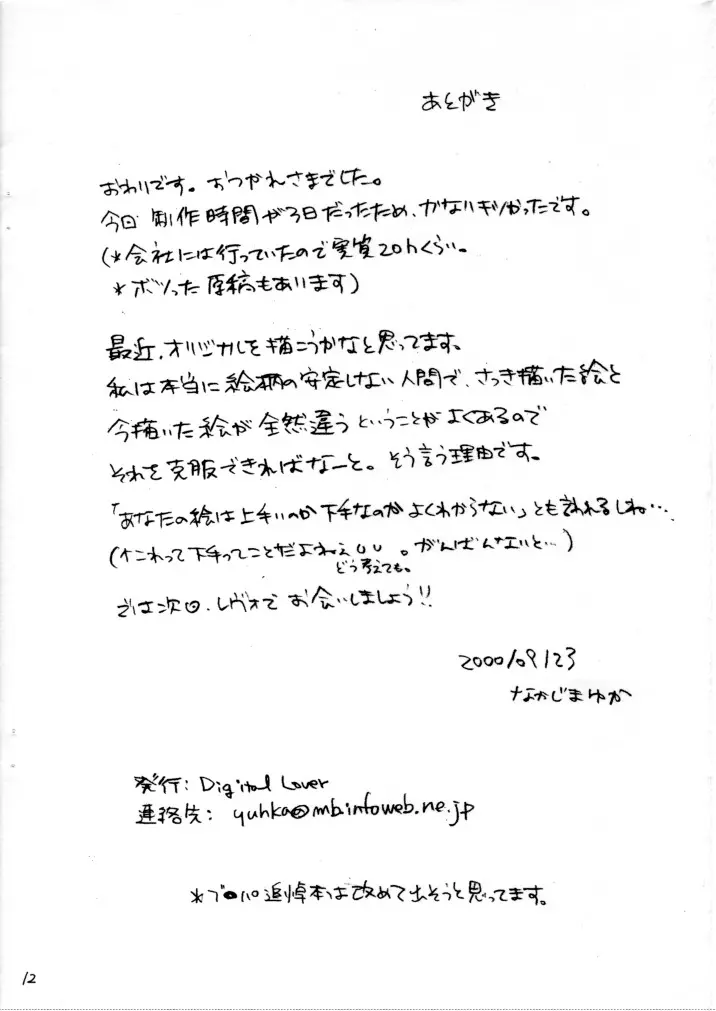 あとがき
おわりです。おつかれさまでした。
今回 制作時間が3日だったため、かなりギリかったです。
(*会社には行っていたので実質20hくらい。
*ボツった原稿もあります)
最近、オリジナルを描こうかなと思ってます。
私は本当に絵柄の安定しない人間で、さっき描いた絵と
今描いた絵が全然違うということがよくあるので
それを克服できればなーと。そう言う理由です。
「あなたの絵は上手いのか下手なのかよくわからない」とも言われるしね…
(これって下手ってことだよねぇUU 。がんばんないと…)
どう考えても。
では次回、レヴォでお会いしましょう!!
2000/09/23
なかじまゆか
発行: Digital Lover
連絡先: yuhka@mb.infoweb.ne.jp
*プ●パ追悼本は改めて出そうと思ってます。
12